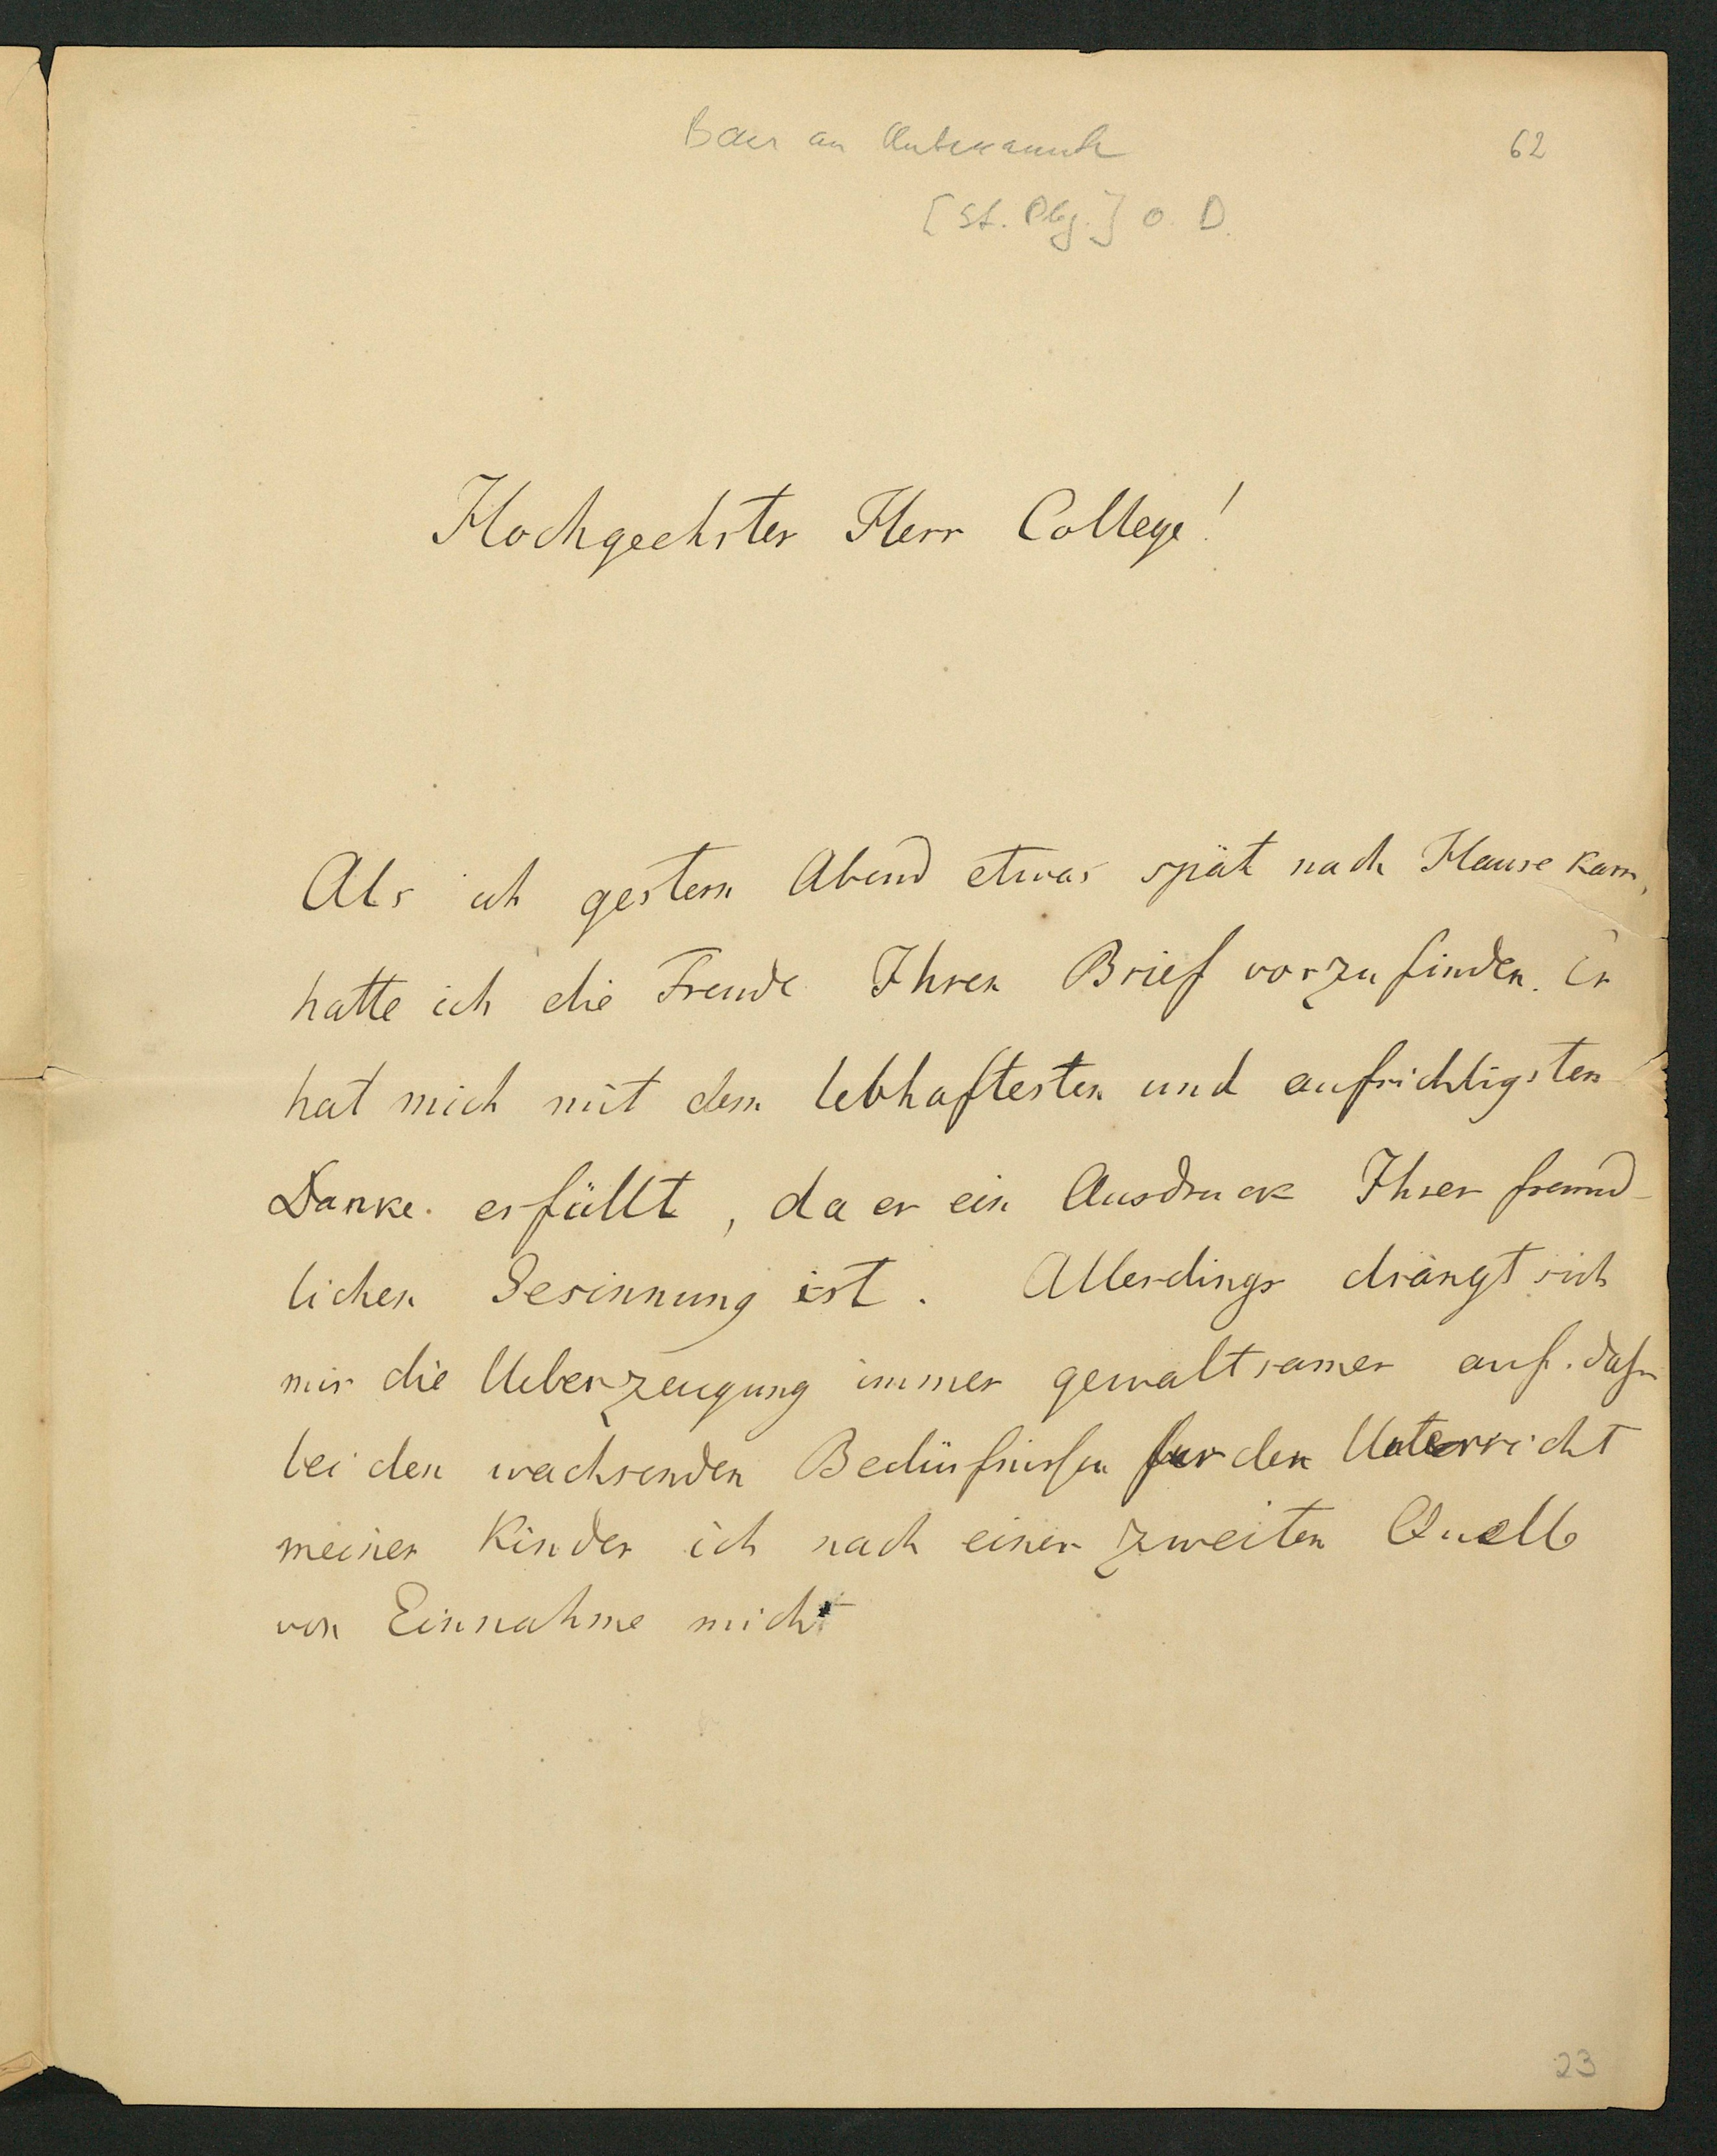 Baer an Unbekannt
62
[St. Pbg.] O. D.
Hochgeehrter Herr College!
Als ich gestern Abend etwas spät nach Hause kam,
hatte ich die Freude Ihren Brief vorzufinden. Er
hat mich mit dem lebhaftesten und aufrichtigsten
Danke erfüllt, da er ein Ausdruck Ihrer freund-
lichen Gesinnung ist. Allerdings drängt sich
mir die Ueberzeugung immer gewaltsamer auf. daß
bei den wachsenden Bedürfnissen fur den Unterricht
meiner Kinder ich nach einer zweiten Quelle
von Einnahme mich
23